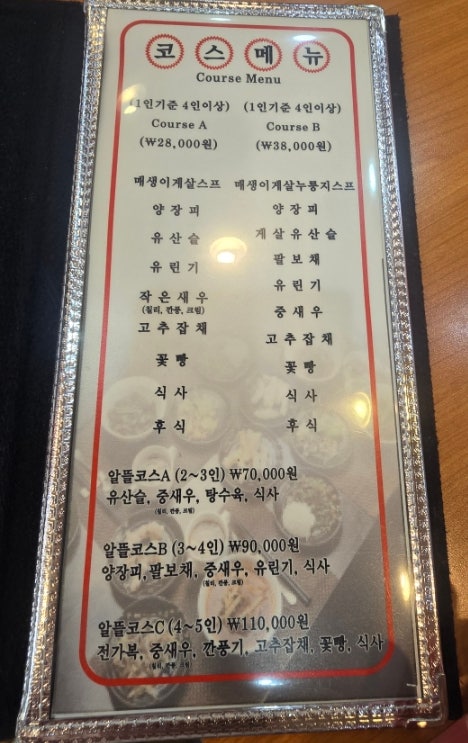 코스메뉴
Course Menu
(1인기준 4인이상)
Course A
(₩28,000원)
매생이게살스프
양장피
유산슬
유린기
작은새우
(칠리, 깐풍, 크림)
고추잡채
꽃빵
식사
후식
(1인기준 4인이상)
Course B
(₩38,000원)
매생이게살누룽지스프
양장피
게살유산슬
팔보채
유린기
중새우
고추잡채
꽃빵
식사
후식
알뜰코스A (2~3인) ₩70,000원
유산슬, 중새우, 탕수육, 식사
(칠리, 깐풍, 크림)
알뜰코스B (3~4인) ₩90,000원
양장피,팔보채, 중새우, 유린기, 식사
(칠리, 깐풍, 크림)
알뜰코스C (4~5인) ₩110,000원
전가복, 중새우, 깐풍기, 고추잡채, 꽃빵, 식사
(칠리, 깐풍, 크림)